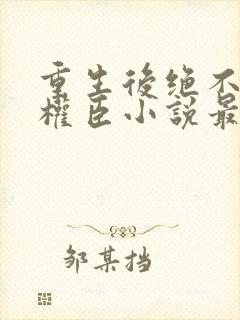 重生後绝不
權臣小說最
邹某挡